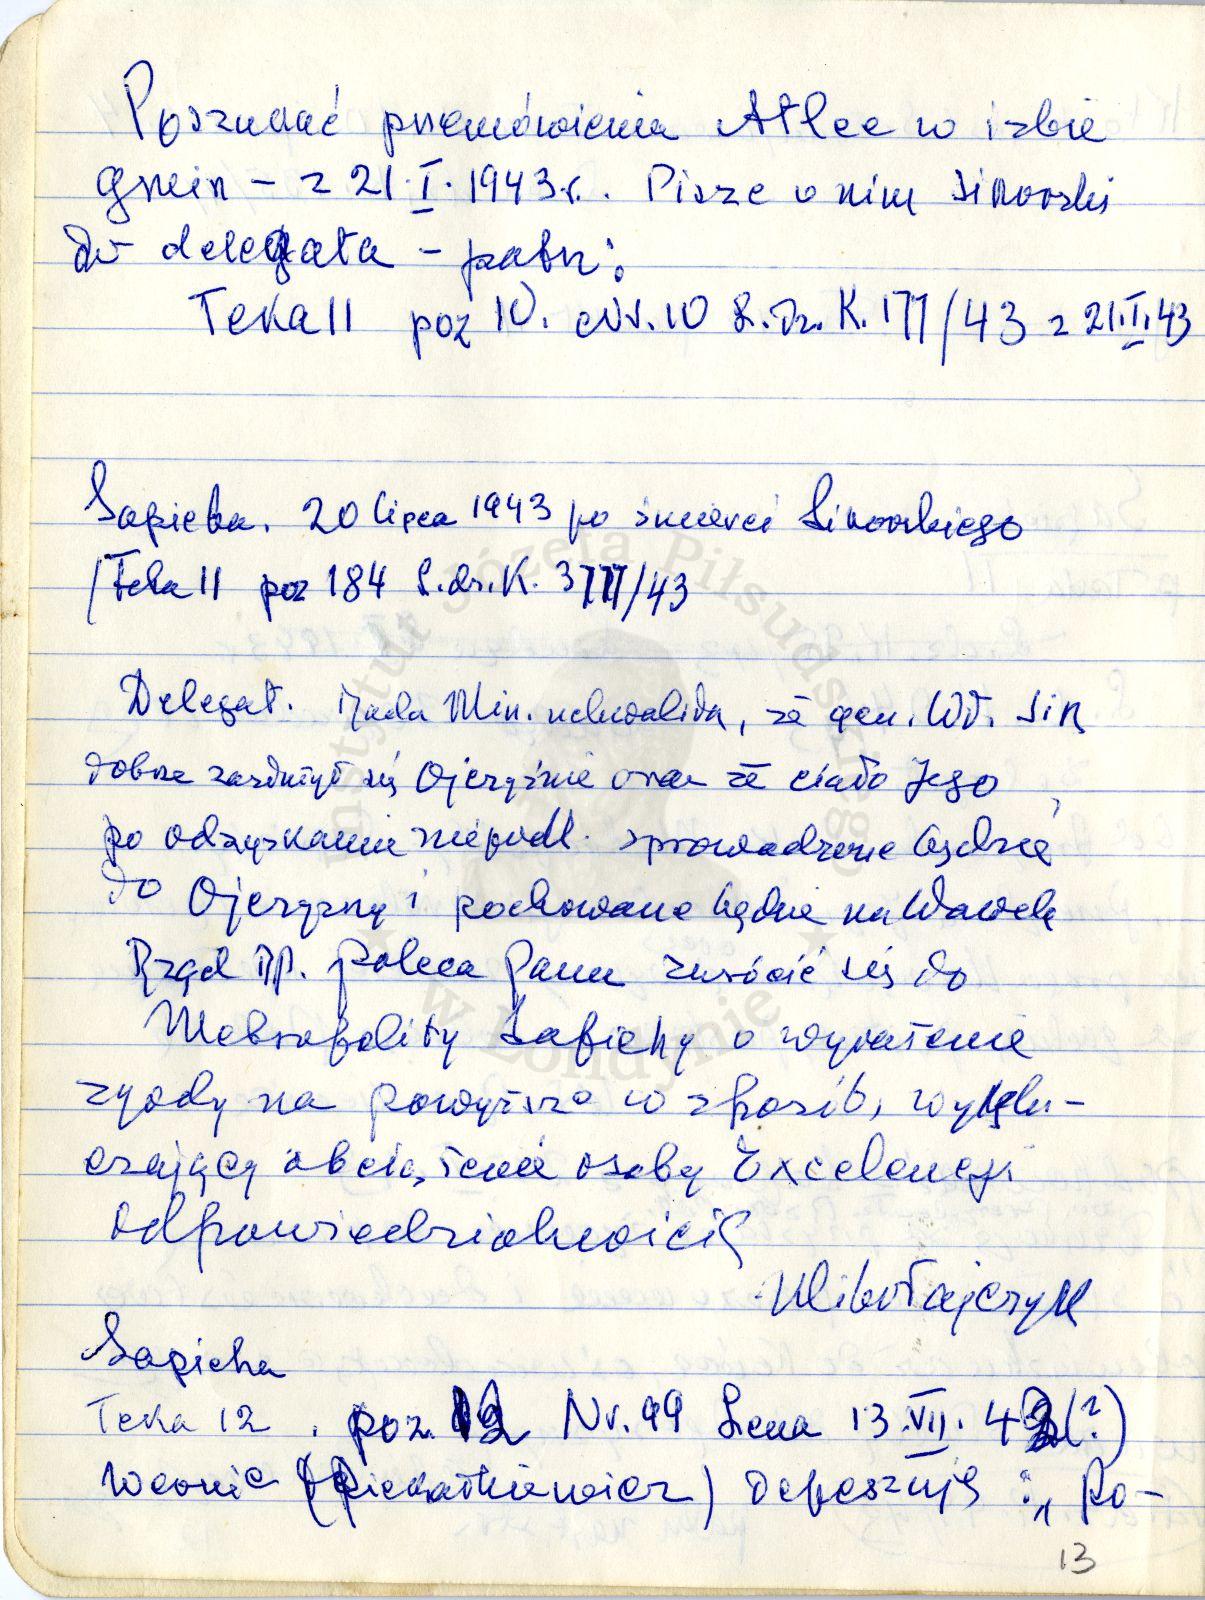 Poszukać przemówienia Atlee w izbie
gmin – z 21.I.1943 r. Pisze o nim Sikorski
do delegata – patrz:
Teka 11 poz 10. Nr. 10 L.Dz. K. 177/43 z 21.I.43
Sapieha. 20 lipca 1943 po śmierci Sikorskiego
/Teka 11 poz 184 L.dz.K. 3777/43
Delegat. Rada Min. uchwaliła, że gen. Wł. Sik
dobrze zasłużył się Ojczyźnie oraz że ciało Jego,
po odzyskaniu niepodl. sprowadzone będzie
do Ojczyzny i pochowane będzie na Wawelu
Rząd RP. poleca Panu zwrócić się do
Metropolity Sapiehy o wyrażenie
zgody na powyższe w sposób, wyklu-
czający obciążenie osoby Excelencji
odpowiedzialnością
Mikołajczyk
Sapieha
Teka 12. poz. 12 Nr. 99 Lena 13.VII.42(?)
Wernic (Piekałkiewicz) depeszuje: „Po-
13
Instytut Józefa Piłsudskiego
w Londynie